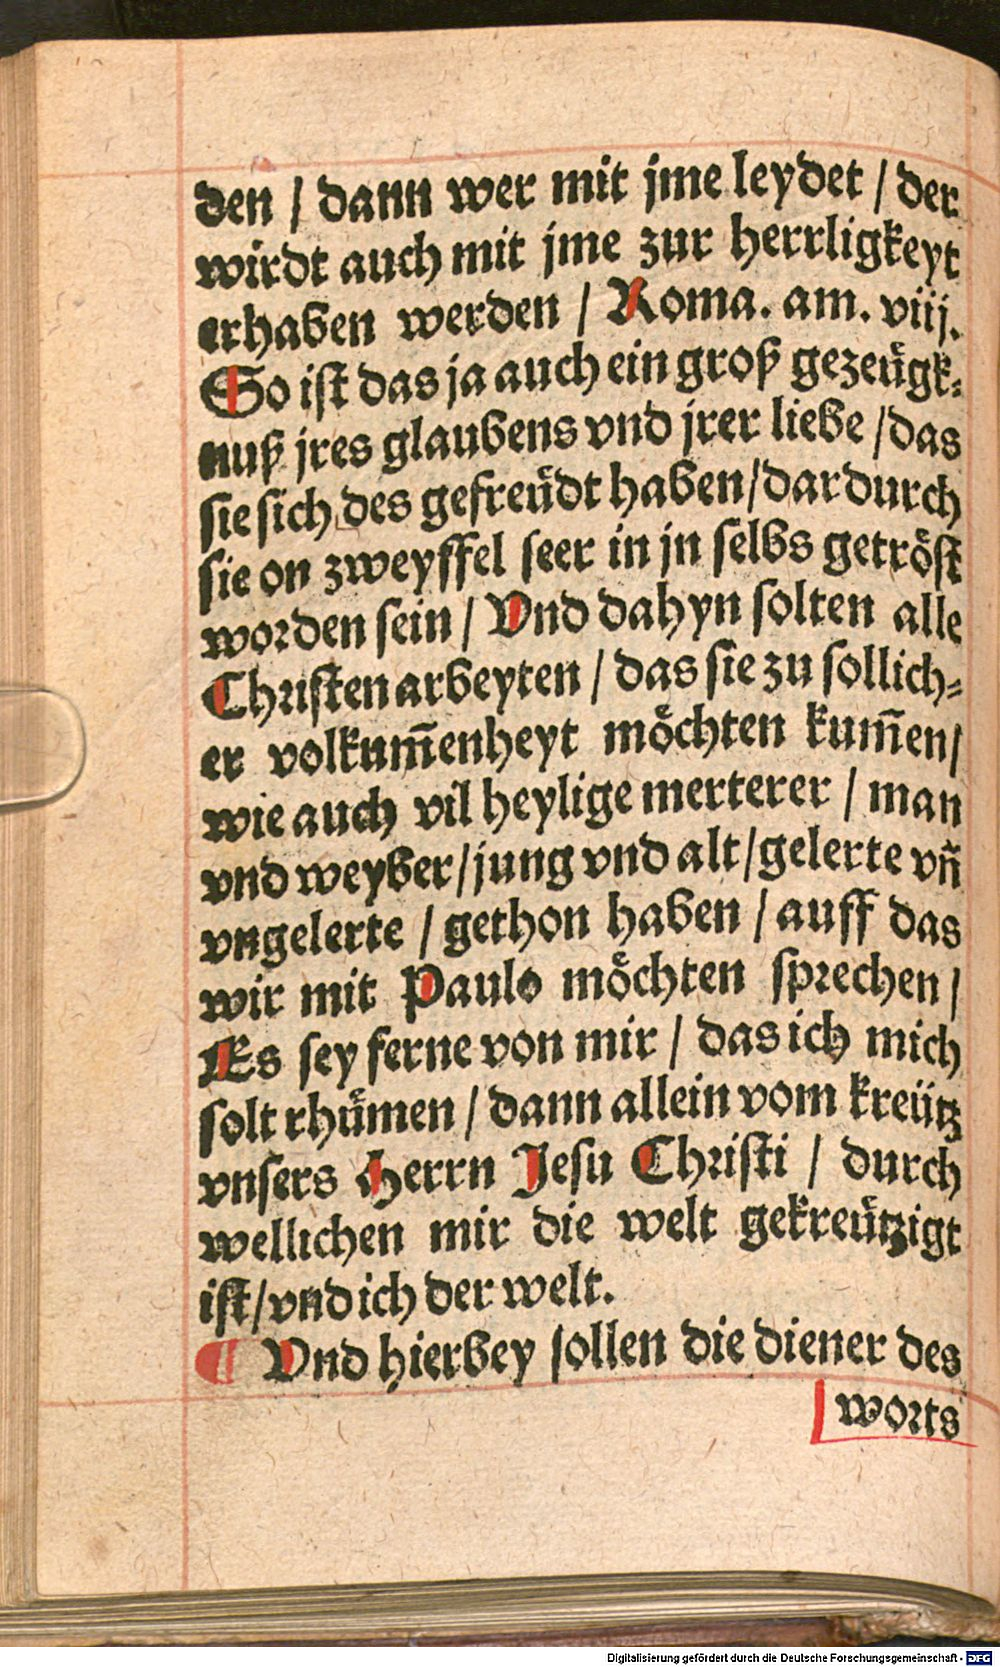 den / dann wer mit jme leydet / der
wirdt auch mit jme zur herrligkeyt
erhaben werden / Roma. am. viij.
So ist das ja auch ein groß gezeügk⸗
nuß jres glaubens vnd jrer liebe / das
sie sich des gefreüdt haben / dardurch
sie on zweyffel seer in jn selbs getröst
worden sein / Vnd dahyn solten alle
Christen arbeyten / das sie zu sollich⸗
er volkum̄enheyt möchten kum̄en /
wie auch vil heylige merterer / man
vnd weyber / jung vnd alt / gelerte vn̄
vngelerte / gethon haben / auff das
wir mit Paulo möchten sprechen /
Es sey ferne von mir / das ich mich
solt rhuͤmen / dann allein vom kreütz
vnsers Herrn Jesu Christi / durch
wellichen mir die welt gekreützigt
ist / vnd ich der welt.
¶ Vnd hierbey sollen die diener des
worts
Digitalisierung gefördert durch die Deutsche Forschungsgemeinschaft - DFG